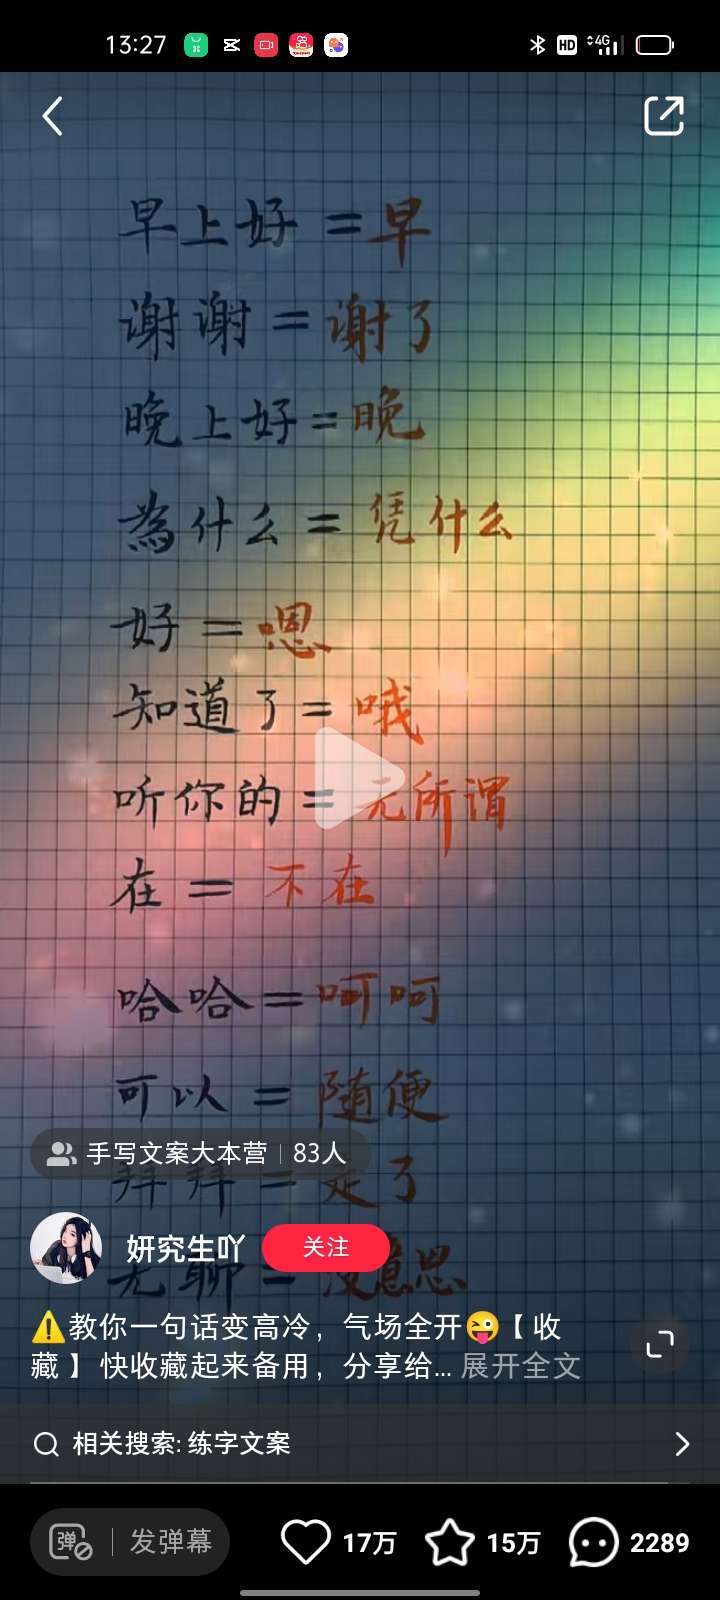 13:27
HD 4G
早上好 = 早
谢谢 = 谢了
晚上好 = 晚
為什么 = 凭什么
好 = 嗯
知道了 = 哦
听你的 = 无所谓
在 = 不在
哈哈 = 呵呵
可以 = 随便
手写文案大本营 | 83人
拜拜 = 走了
妍究生吖 关注
无聊 = 没意思
⚠️教你一句话变高冷，气场全开😜【 收
藏 】快收藏起来备用，分享给... 展开全文
相关搜索: 练字文案
弹 | 发弹幕 17万 15万 2289